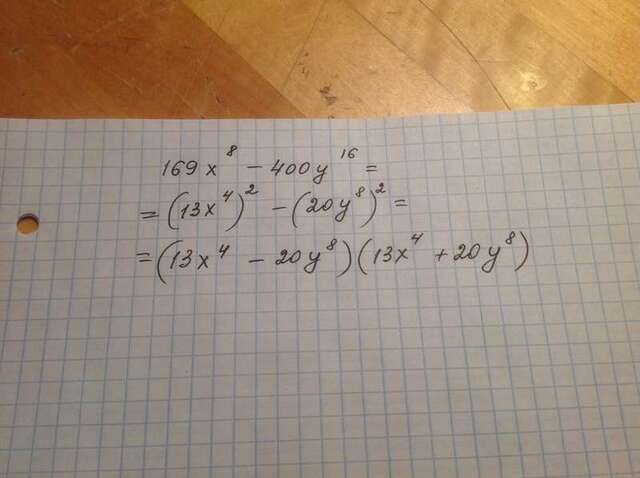 169x⁸ - 400y¹⁶ =
= (13x⁴)² - (20y⁸)² =
= (13x⁴ - 20y⁸)(13x⁴ + 20y⁸)